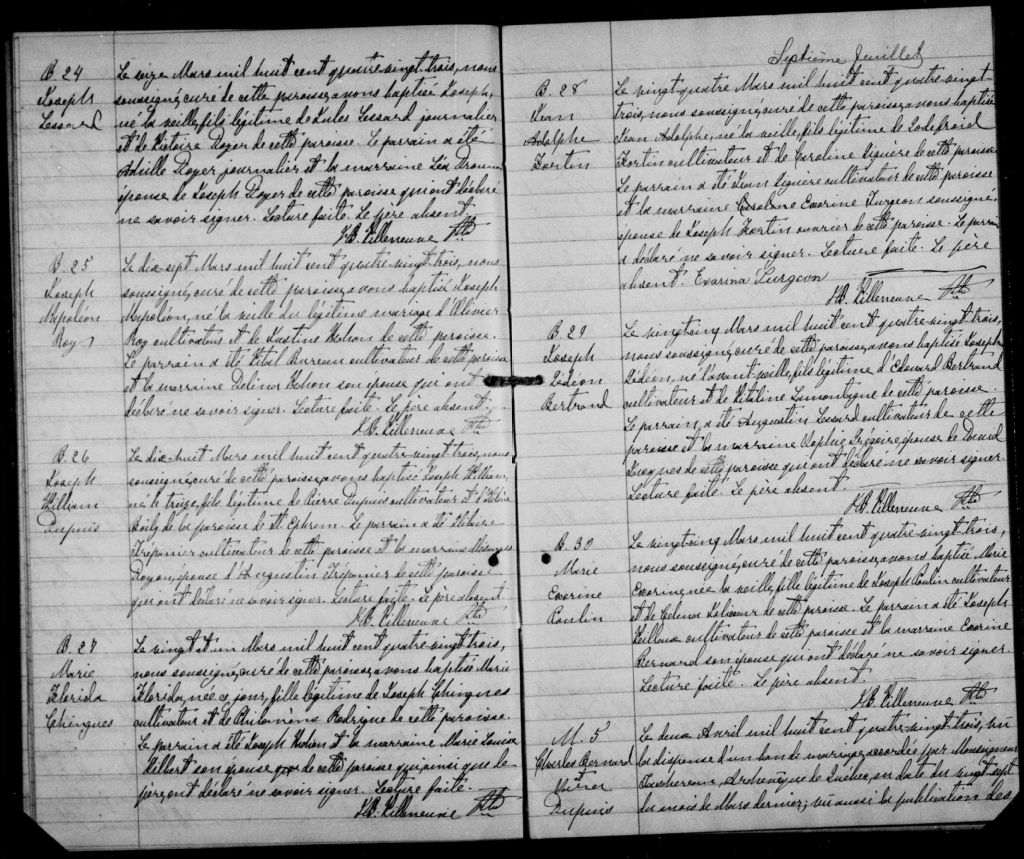 B. 24
Joseph
Lessard
Le seize Mars mil huit cent quatre-vingt-trois, nous
soussigné, curé de cette paroisse, avons baptisé Joseph,
né la veille, fils légitime de Jules Lessard journalier
et de Victoire Royer de cette paroisse. Le parrain a été
Achille Royer journalier et la marraine Léa Drouin
épouse de Joseph Royer de cette paroisse qui ont déclaré
ne savoir signer. Lecture faite. Le père absent.
J.B. Villeneuve Ptre
B. 25
Joseph
Napoléon
Roy
Le dix-sept Mars mil huit cent quatre-vingt-trois, nous
soussigné, curé de cette paroisse, avons baptisé Joseph
Napoléon, né la veille du légitime mariage d'Olivier
Roy cultivateur et de Justine Vohon de cette paroisse.
Le parrain a été Vital Bureau cultivateur de cette paroisse
et la marraine Delina Vohon son épouse qui ont
déclaré ne savoir signer. Lecture faite. Le père absent.
J.B. Villeneuve Ptre
B. 26
Joseph
William
Dupuis
Le dix-huit Mars mil huit cent quatre-vingt-trois, nous
soussigné, curé de cette paroisse, avons baptisé Joseph William,
né le treize, fils légitime de Pierre Dupuis cultivateur et d'
Doily de la paroisse de St. Ephrem. Le parrain a été
Trépanier cultivateur de cette paroisse et la marraine
Doyon, épouse d'Augustin Trépanier de cette paroisse
qui ont déclaré ne savoir signer. Lecture faite. Le père absent
J.B. Villeneuve Ptre
B. 27
Marie
Florida
Chingues
Le vingt et un Mars mil huit cent quatre-vingt-trois,
nous soussigné, curé de cette paroisse, avons baptisé Marie
Florida, née ce jour, fille légitime de Joseph Chingues
cultivateur et de Philomène Rodrigue de cette paroisse.
Le parrain a été Joseph Vohon et la marraine Marie Louise
Gilbert son épouse de cette paroisse qui ainsi que le
père, ont déclaré ne savoir signer. Lecture faite.
J.B. Villeneuve Ptre
Septième feuillet
B. 28
Jean
Adolphe
Fortin
Le vingt-quatre Mars mil huit cent quatre-vingt-
trois, nous soussigné, curé de cette paroisse, avons baptisé
Jean Adolphe, né la veille, fils légitime de Godefroid
Fortin cultivateur et de Caroline Giguère de cette paroisse.
Le parrain a été Jean Giguère cultivateur de cette paroisse
et la marraine Caroline Evorine Turgeon soussigné,
épouse de Joseph Fortin ouvrier de cette paroisse. Le parrain
a déclaré ne savoir signer. Lecture faite. Le père
absent. Evarina Turgeon
J.B. Villeneuve Ptre
B. 29
Joseph
Gédéon
Bertrand
Le vingt-cinq Mars mil huit cent quatre-vingt-trois,
nous soussigné, curé de cette paroisse, avons baptisé Joseph
Gédéon, né l'avant-veille, fils légitime d'Edouard Bertrand
cultivateur et de Vitaline Lamontagne de cette paroisse.
Le parrain, a été Augustin Lessard cultivateur de cette
paroisse et la marraine Sophie Grégoire, épouse de David
Jacques de cette paroisse qui ont déclaré ne savoir signer.
Lecture faite. Le père absent.
J.B. Villeneuve Ptre
B. 30
Marie
Evorine
Poulin
Le vingt-cinq Mars mil huit cent quatre-vingt-trois,
nous soussigné, curé de cette paroisse, avons baptisé Marie
Evorine, née la veille, fille légitime de Joseph Poulin cultivateur
et de Célina Jolicoeur de cette paroisse. Le parrain a été Joseph
Veilleux cultivateur de cette paroisse et la marraine Evorine
Bernard son épouse qui ont déclaré ne savoir signer.
Lecture faite. Le père absent.
J.B. Villeneuve Ptre
M. 5
Charles Bernard
et
Dupuis
Le deux Avril mil huit cent quatre-vingt-trois, vu
la dispense d'un ban de mariage, accordée par Monseigneur
Taschereau, Archevêque de Québec, en date du vingt-sept
du mois de Mars dernier; vû aussi la publication des